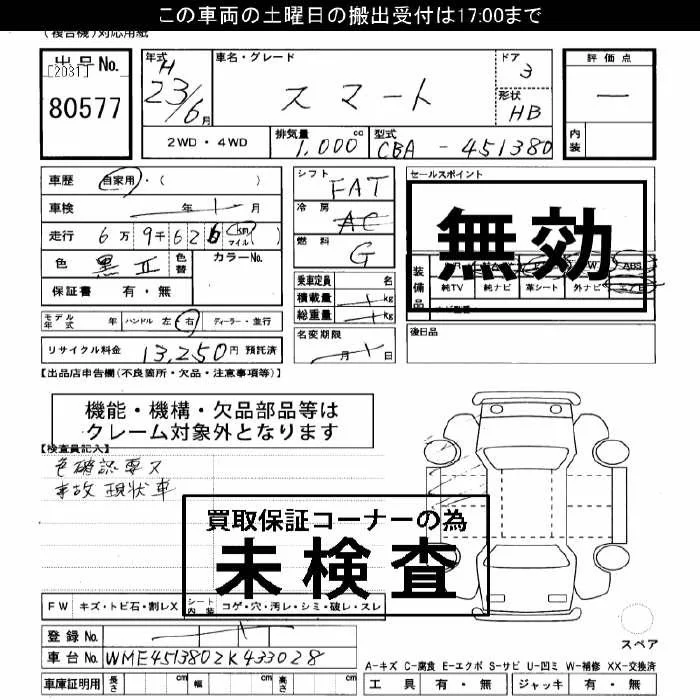 この車両の土曜日の搬出受付は17:00まで
(複合機)対応用紙
出品No. [2031] 80577
年式 H 23/6月
車名・グレード スマート
ドア 3
形状 HB
評価点 一
内装
2WD・4WD
排気量 1,000 cc
型式 CBA - 451380
車歴 自家用・( )
車検 年 月
走行 6万9千626 (km マイル)
色 黒Ⅱ 色替 カラーNo.
保証書 有・無
モデル年式 年 ハンドル 左 右 ディーラー・並行
リサイクル料金 13,250円 預託済
シフト FAT
冷房 AC
燃料 G
乗車定員 名
積載量 kg
総重量 kg
名変期限 月 日
セールスポイント
無効
装備品 ABS
純TV 純ナビ 革シート 外ナビ
後日品
【出品店申告欄(不良箇所・欠品・注意事項等)】
機能・機構・欠品部品等は
クレーム対象外となります
【検査員記入】
色確認要ス
事故 現状車
買取保証コーナーの為
未検査
FW キズ・トビ石・割レX シート内装 コゲ・穴・汚レ・シミ・破レ・スレ
登録No.
車台No. WME4513802K433028
車庫証明用 長さ cm 幅 cm 高さ cm
スペア
A-キズ C-腐食 E-エクボ S-サビ U-凹ミ W-補修 XX-交換済
工具 有・無 ジャッキ 有・無